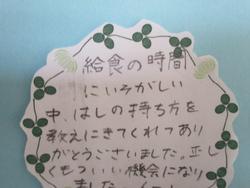 給食の時間
にいそがしい
中、はしの持ち方を
教えにきてくれてあり
がとうございました。正し
くもついい機会になり
ました。